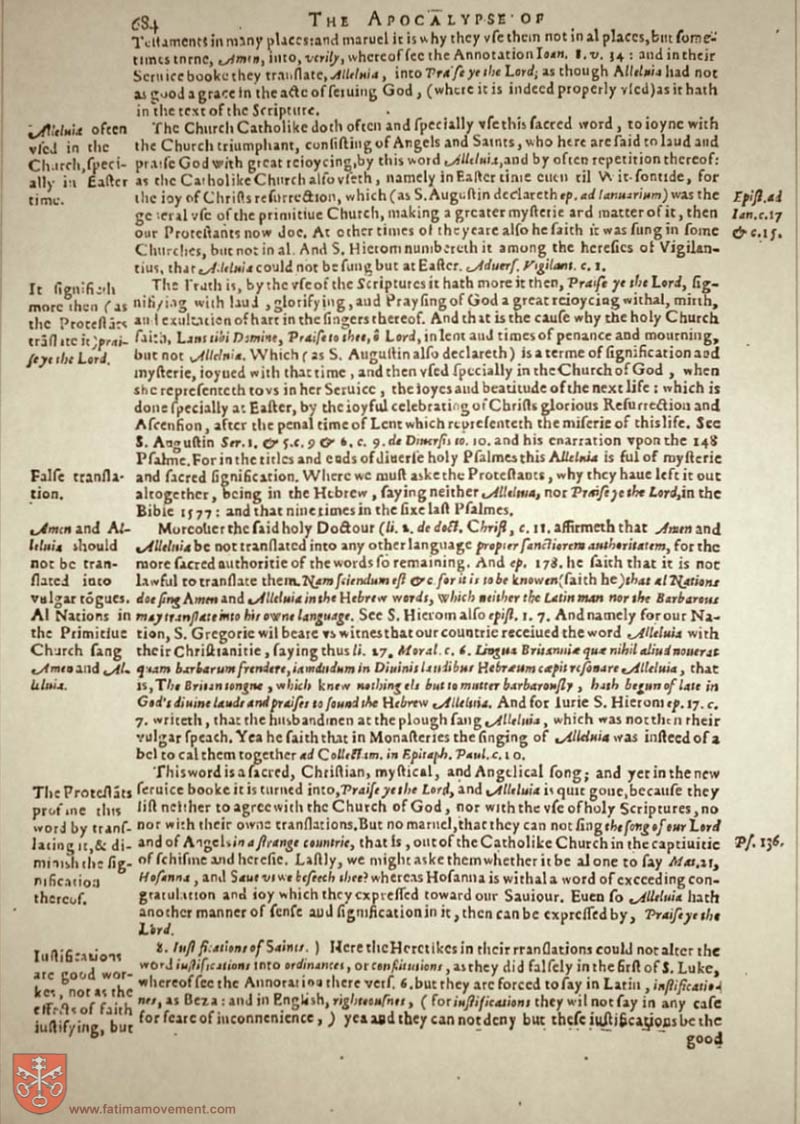 684 THE APOCALYPSE OF
Testaments in many places: and maruel it is why they vse them not in al places, but some-
times turne, Amen, into, verily, whereof see the Annotation Ioan. 8. v. 34: and in their
Seruice booke they translate, Alleluia, into Praise ye the Lord; as though Alleluia had not
as good a grace in the acte of seruing God, (where it is indeed properly vsed) as it hath
in the text of the Scripture.
Alleluia often
vsed in the
Church, speci-
ally in Easter
time.
The Church Catholike doth often and specially vse this sacred word, to ioyne with
the Church triumphant, consisting of Angels and Saints, who here are said to laud and
praise God with great reioycing, by this word Alleluia, and by often repetition thereof:
as the Catholike Church also vseth, namely in Easter time euen til Whitsontide, for
the ioy of Christs resurrection, which (as S. Augustin declareth ep. ad Ianuarium) was the
general vse of the primitiue Church, making a greater mysterie and matter of it, then
our Protestants now doe. At other times of the yeare also he saith it was sung in some
Churches, but not in al. And S. Hierom numbereth it among the heresies of Vigilan-
tius, that Alleluia could not be sung but at Easter. Aduers. Vigilant. c. 1.
Epist. ad
Ian. c. 17
& c. 15.
It signifieth
more then (as
the Protestāts
trāslate it) prai-
se ye the Lord.
The Truth is, by the vse of the Scriptures it hath more it then, Praise ye the Lord, sig-
nifying with laud, glorifying, and Praysing of God a great reioycing withal, mirth,
and exultation of hart in the singers thereof. And that is the cause why the holy Church
saith, Laus tibi Domine, Praise to thee, ô Lord, in lent and times of penance and mourning,
but not Alleluia. Which (as S. Augustin also declareth) is a terme of signification and
mysterie, ioyned with that time, and then vsed specially in the Church of God, when
she representeth to vs in her Seruice, the ioyes and beatitude of the next life: which is
done specially at Easter, by the ioyful celebrating of Christs glorious Resurrection and
Ascension, after the penal time of Lent which representeth the miserie of this life. See
S. Augustin Ser. 1. & 5. c. 9 & 6. c. 9. de Diuersis to. 10. and his enarration vpon the 148
Psalme. For in the titles and ends of diuerse holy Psalmes this Alleluia is ful of mysterie
and sacred signification. Where we must aske the Protestants, why they haue left it out
altogether, being in the Hebrew, saying neither Alleluia, nor Praise ye the Lord, in the
Bible 1577: and that nine times in the sixe last Psalmes.
False transla-
tion.
Amen and Al-
leluia should
not be tran-
slated into
vulgar tōgues.
Al Nations in
the Primitiue
Church sang
Amen and Al-
leluia.
Moreouer the said holy Doctour (li. 2. de doct. Christ, c. 11. affirmeth that Amen and
Alleluia be not translated into any other language propter sanctiorem authoritatem, for the
more sacred authoritie of the words so remaining. And ep. 178. he saith that it is not
lawful to translate them. Nam sciendum est &c for it is to be knowen (saith he) that al Nations
doe sing Amen and Alleluia in the Hebrew words, which neither the Latin man nor the Barbarous
may translate into his owne language. See S. Hierom also epist. 1. 7. And namely for our Na-
tion, S. Gregorie wil beare vs witnes that our countrie receiued the word Alleluia with
their Christianitie, saying thus li. 27. Moral. c. 6. Lingua Britanniæ quæ nihil aliud nouerat
quam barbarum frendere, iamdudum in Diuinis laudibus Hebræum cæpit resonare Alleluia, that
is, The Britan tongue, which knew nothing els but to mutter barbarously, hath begun of late in
God's diuine lauds and praises to sound the Hebrew Alleluia. And for Iurie S. Hierom ep. 17. c.
7. writeth, that the husbandmen at the plough sang Alleluia, which was not then their
vulgar speach. Yea he saith that in Monasteries the singing of Alleluia was insteed of a
bel to cal them together ad Collectam. in Epitaph. Paul. c. 10.
The Protestāts
profane this
word by trans-
lating it, & di-
minish the sig-
nification
thereof.
This word is a sacred, Christian, mystical, and Angelical song; and yet in the new
seruice booke it is turned into, Praise ye the Lord, and Alleluia is quit gone, because they
list neither to agree with the Church of God, nor with the vse of holy Scriptures, no
nor with their owne translations. But no maruel, that they can not sing the song of our Lord
and of Angels in a strange countrie, that is, out of the Catholike Church in the captiuitie
of schisme and heresie. Lastly, we might aske them whether it be al one to say Mat. 21,
Hosanna, and Saue vs we beseech thee? whereas Hosanna is withal a word of exceeding con-
gratulation and ioy which they expressed toward our Sauiour. Euen so Alleluia hath
another manner of sense and signification in it, then can be expressed by, Praise ye the
Lord.
Ps. 136.
Iustifications
are good wor-
kes, not as the
effects of faith
iustifying, but
8. Iustifications of Saints.) Here the Heretikes in their translations could not alter the
word iustifications into ordinances, or constitutions, as they did falsely in the first of S. Luke,
whereof see the Annotation there vers. 6. but they are forced to say in Latin, iustificatio-
nes, as Beza: and in English, righteousnes, (for iustifications they wil not say in any case
for feare of inconuenience,) yea and they can not deny but these iustifications be the
good
www.fatimamovement.com